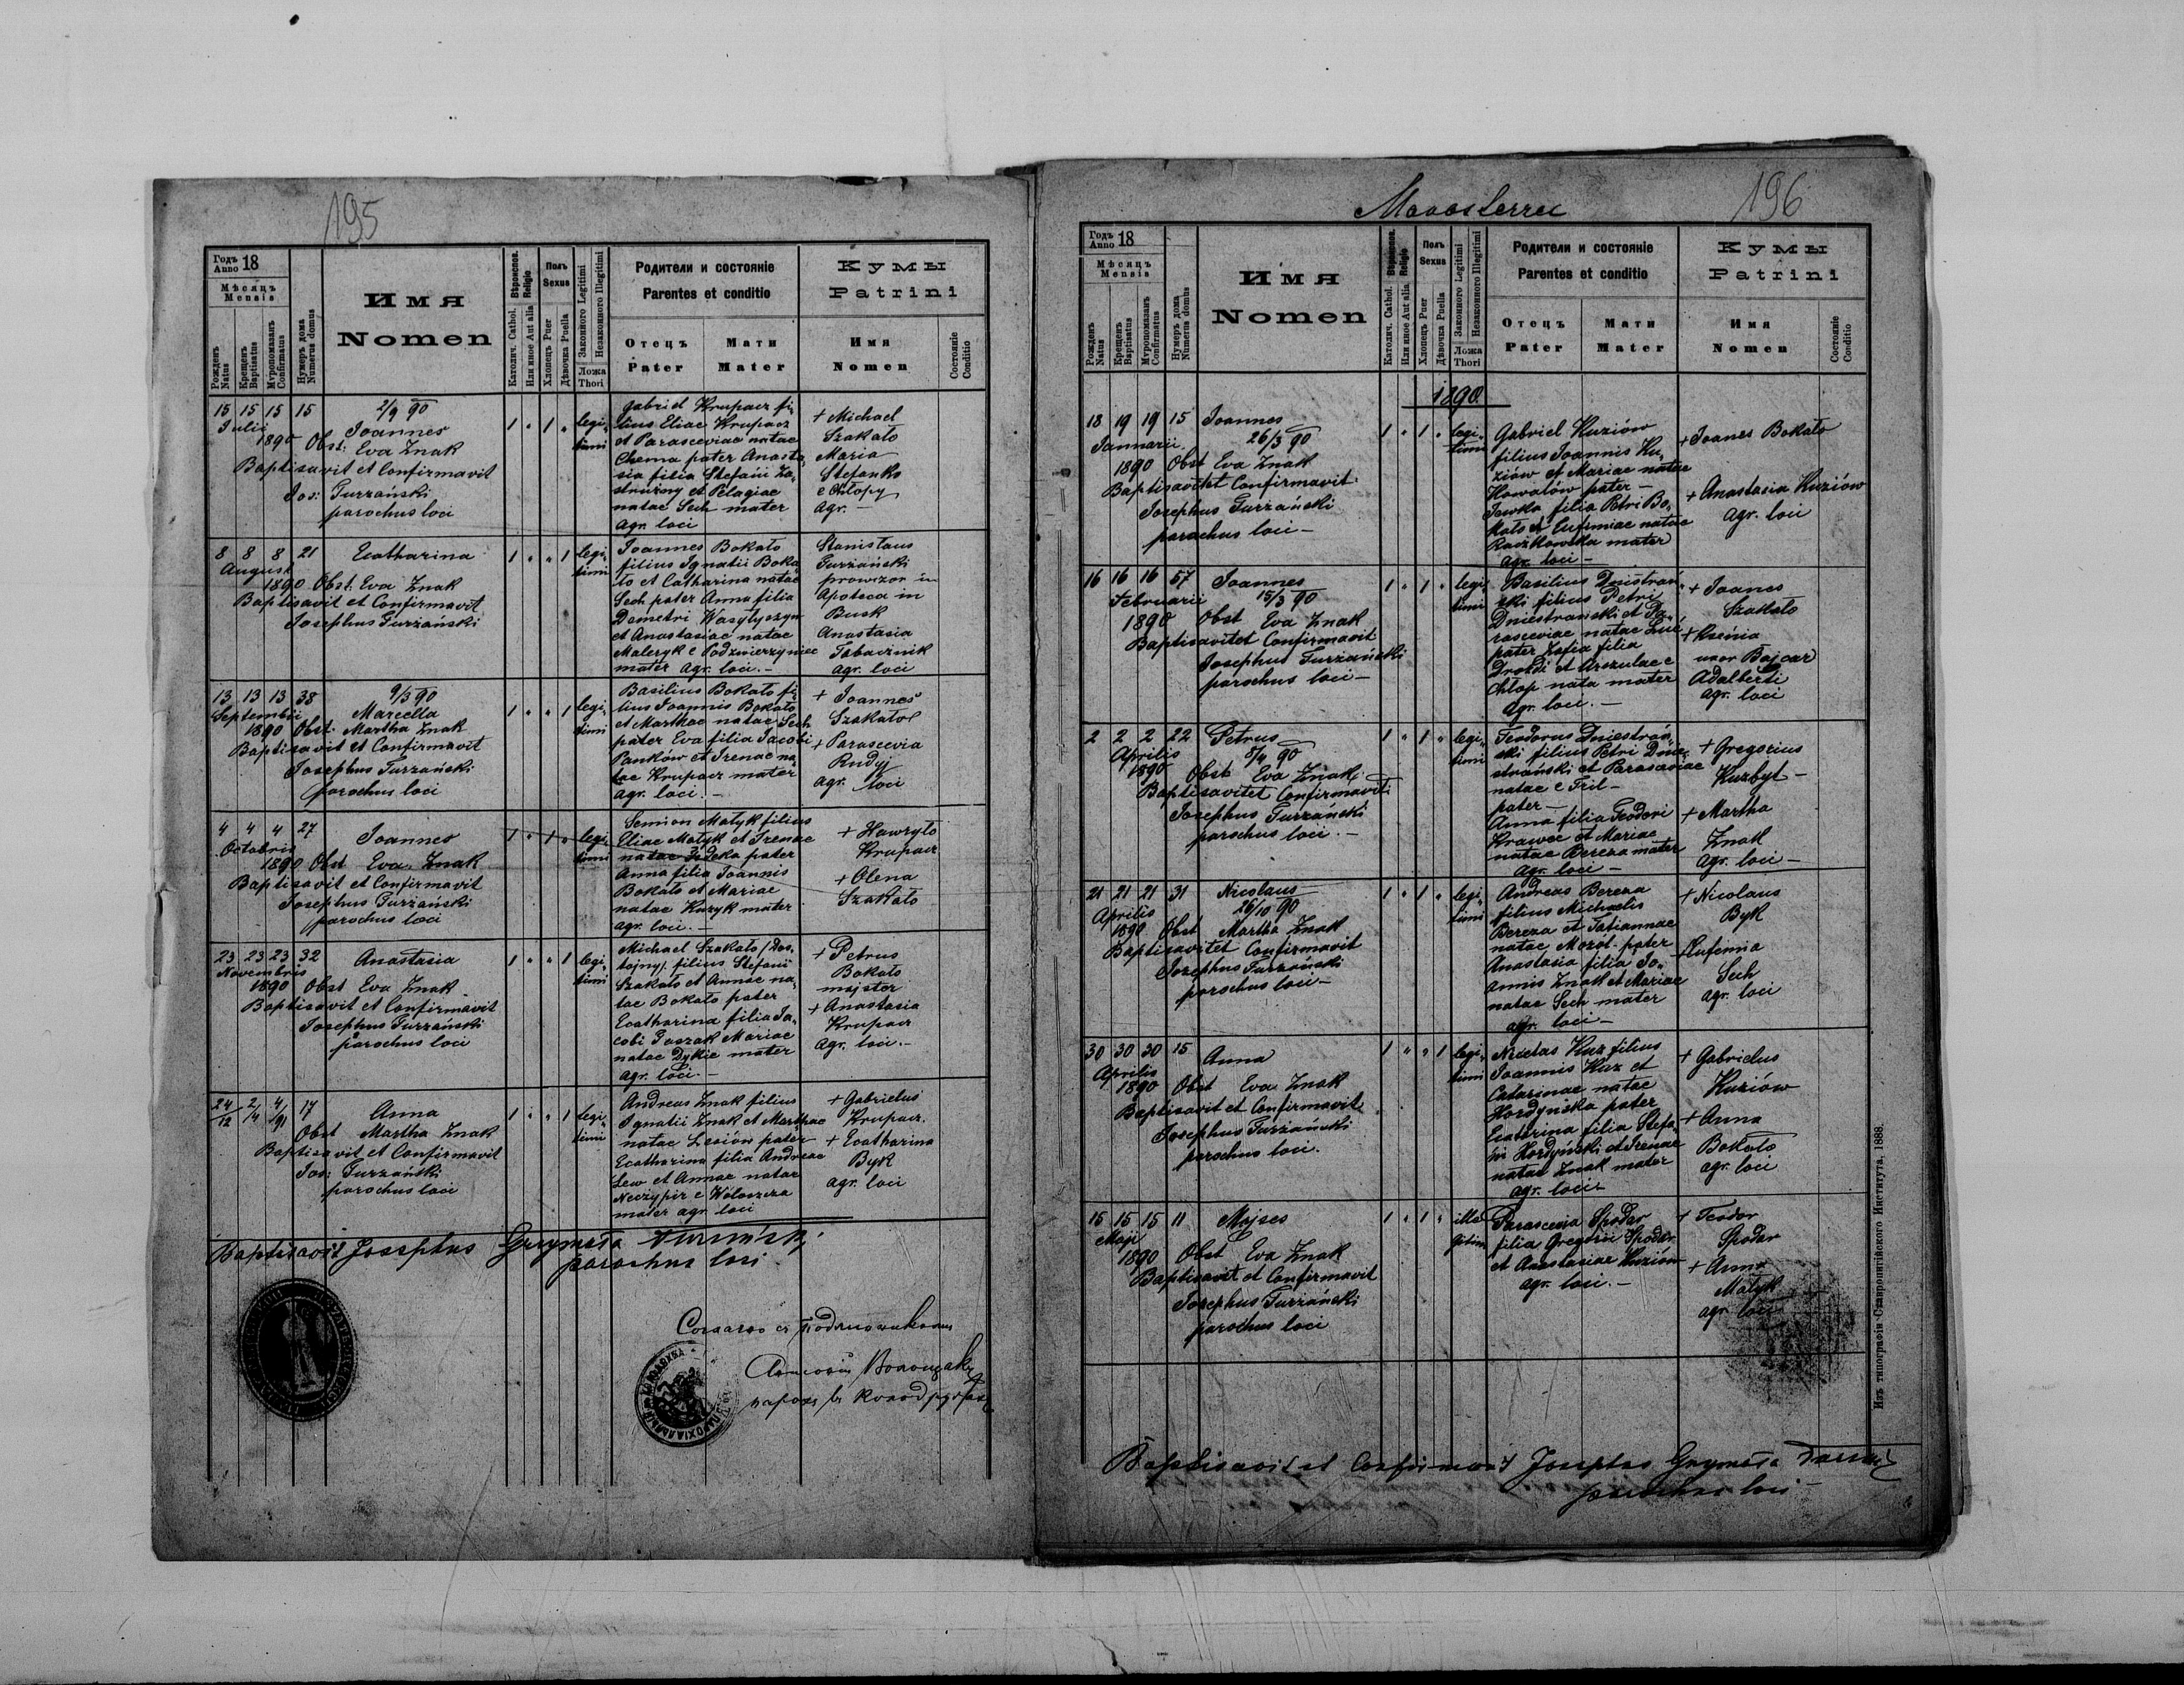 195
Годъ
Anno 18
Мѣсяцъ
Mensis
Рожденъ
Natus
Крещенъ
Baptisatus
Мѵропомазанъ
Confirmatus
Нумеръ дома
Numerus domus
Имя
Nomen
Вѣроиспов.
Religio
Католич. Cathol.
Или иное Aut alia
Полъ
Sexus
Хлопецъ Puer
Дѣвочка Puella
Законного Legitimi
Незаконного Illegitimi
Ложа
Thori
Родители и состояніе
Parentes et conditio
Отецъ
Pater
Мати
Mater
Кумы
Patrini
Имя
Nomen
Состояніе
Conditio
15 15 15 15 2/9 90
Julii Joannes
1890 Obst: Eva Znak
Baptisavit et Confirmavit
Jos: Turzański
parochus loci
1 " 1 "
legi-
timi
Gabriel Krupacz fi-
lius Eliae Krupacz
et Parasceviae natae
Chema pater Anasta-
sia filia Stefani Za-
strużny et Pelagiae
natae Sech mater
agr. loci
+ Michael
Szakało
Maria
Stefanko
e Chłopy
agr. -
8 8 8 21 Ecatharina
August
1890 Obst. Eva Znak
Baptisavit et Confirmavit
Josephus Turzański
1 " " 1
legi-
timi
Joannes Bokało
filius Ignatii Boka-
ło et Catharina natae
Sech pater Anna filia
Demetri Wasyłyszyn
et Anastasiae natae
Maleryk e Podzwierzyniec
mater agr. loci. -
Stanislaus
Turzański
prowizor in
Apoteca in
Busk
Anastasia
Tabacznik
agr. loci
13 13 13 38 9/3 90
Septembri Marcella
1890 Obst. Martha Znak
Baptisavit et Confirmavit
Josephus Turzański
parochus loci
1 " " 1
legi-
timi
Basilius Bokało fi-
lius Joannis Bokało
et Marthae natae Sech
pater Eva filia Jacobi
Panków et Irenae na-
tae Krupacz mater
agr. loci. -
+ Joannes
Szakało
+ Parascevia
Rudyj
agr. loci
4 4 4 27 Joannes
Octobris
1890 Obst Eva Znak
Baptisavit et Confirmavit
Josephus Turzański
parochus loci
1 " 1 "
legi-
timi
Semion Matyk filius
Eliae Matyk et Irenae
pater
Anna filia Joannis
Bokało et Mariae
natae Kuzyk mater
agr. loci. -
+ Hawryło
Krupacz
+ Olena
Szakało
23 23 23 32 Anastasia
Novembris
1890 Obst Eva Znak
Baptisavit et Confirmavit
Josephus Turzański
parochus loci
1 " " 1
legi-
timi
Michael Szakało /Dos-
tojny/ filius Stefani
Szakało et Annae na-
tae Bokało pater
Ecatharina filia Ja-
cobi Paszak Mariae
natae Dykie mater
agr. loci. -
+ Petrus
Bokało
majster
+ Anastasia
Krupacz
agr. loci. -
24/12 2/4 4/91 17 Anna
Obst Martha Znak
Baptisavit et Confirmavit
Jos: Turzański
parochus loci
1 " " 1
legi-
timi
Andreas Znak filius
Ignatii Znak et Marthae
natae Lesiów pater
Ecatharina filia Andreae
Lew et Annae natae
Neczypir e
mater agr. loci
+ Gabrielus
Krupacz
+ Ecatharina
Byk
agr. loci
Baptisavit Josephus Grymała Turzański
parochus loci
196
Годъ
Anno 18
Мѣсяцъ
Mensis
Рожденъ
Natus
Крещенъ
Baptisatus
Мѵропомазанъ
Confirmatus
Нумеръ дома
Numerus domus
Имя
Nomen
Вѣроиспов.
Religio
Католич. Cathol.
Или иное Aut alia
Полъ
Sexus
Хлопецъ Puer
Дѣвочка Puella
Законного Legitimi
Незаконного Illegitimi
Ложа
Thori
Родители и состояніе
Parentes et conditio
Отецъ
Pater
Мати
Mater
Кумы
Patrini
Имя
Nomen
Состояніе
Conditio
1890
18 19 19 15 Joannes
Jannuarii 26/3 90
1890 Obst Eva Znak
Baptisavitet Confirmavit
Josephus Turzański
parochus loci -
1 " 1 "
legi-
timi
Gabriel Kuziów
filius Joannis Ku-
ziów et Mariae natae
Kowalów pater -
Jewka filia Petri Bo-
kało et Eufemiae natae
Raczkowska mater
agr. loci -
+ Joanes Bokało
+ Anastasia Kuziów
agr. loci
16 16 16 57 Joannes
Februarii 15/3 90
1890 Obst Eva Znak
Baptisavitet Confirmavit
Josephus Turzański
parochus loci -
1 " 1 "
legi-
timi
Basilius Dnistrań-
ski filius Petri
Dniestrański et Pa-
rasceviae natae
pater Zofia filia
et Urszulae e
Chłop nata mater
agr. loci. -
+ Joanes
Szakało
+ Ksenia
uxor Bojcar
Adalberti
agr. loci
2 2 2 22 Petrus
Aprilis 5/4 90
1890 Obst Eva Znak
Baptisavitet Confirmavit
Josephus Turzański
parochus loci. -
1 " 1 "
legi-
timi
Teodorus Dniestrań-
ski filius Petri Dnie-
strański et Parasaviae
natae e Tril -
pater -
Anna filia Teodori
Krawec et Mariae
natae Bereza mater
agr. loci -
+ Gregorius
Kuzbyt -
+ Martha
Znak
agr. loci -
21 21 21 31 Nicolaus
Aprilis 26/10 90
1890 Obst Martha Znak
Baptisavitet Confirmavit
Josephus Turzański
parochus loci -
1 " 1 "
legi-
timi
Andreas Bereza
filius Michaelis
Bereza et Tatiannae
natae Mozol - pater
Anastasia filia Jo-
annis Znak et Mariae
natae Sech mater
agr. loci -
+ Nicolaus
Byk
+ Eufemia
Sech
agr. loci
30 30 30 15 Anna
Aprilis
1890 Obst Eva Znak
Baptisavit et Confirmavit
Josephus Turzański
parochus loci.
1 " " 1
legi-
timi
Nicetas Kuz filius
Joannis Kuz et
Catarinae natae
Hordynska pater
Ecatarina filia Stefa-
ni Hordyński et Irenae
natae Znak mater
agr. loci -
+ Gabrielus
Kuziów
+ Anna
Bokało
agr. loci
15 15 15 11 Mojses
Maji
1890 Obst Eva Znak
Baptisavit et Confirmavit
Josephus Turzański
parochus loci
1 " 1 "
ille-
gitimi
Parascevia Spodar
filia Gregorii Spodar
et Anastasiae Kuziów
agr. loci. -
+ Teodor
Spodar
+ Anna
Matyk
agr. loci
Baptisavit et Confirmavit Josephus Grymała
parochus loci -
Изъ типографіи Ставропигійского Института, 1888.